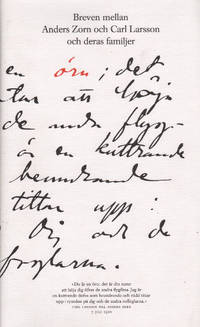 Breven mellan
Anders Zorn och Carl Larsson
och deras familjer
en örn; det
tar att höja
de andra flygg-
är en kuttrande
beundrande
tittar upp i
Dig och de
foglarna.
»Du är en örn; det är din natur
att höja dig öfver de andra flygfäna. Jag är
en kuttrande dufva som beundrande och rädd tittar
upp i rymden på dig och de andra roffoglarna.»
CARL LARSSON TILL ANDERS ZORN
7 JULI 1910